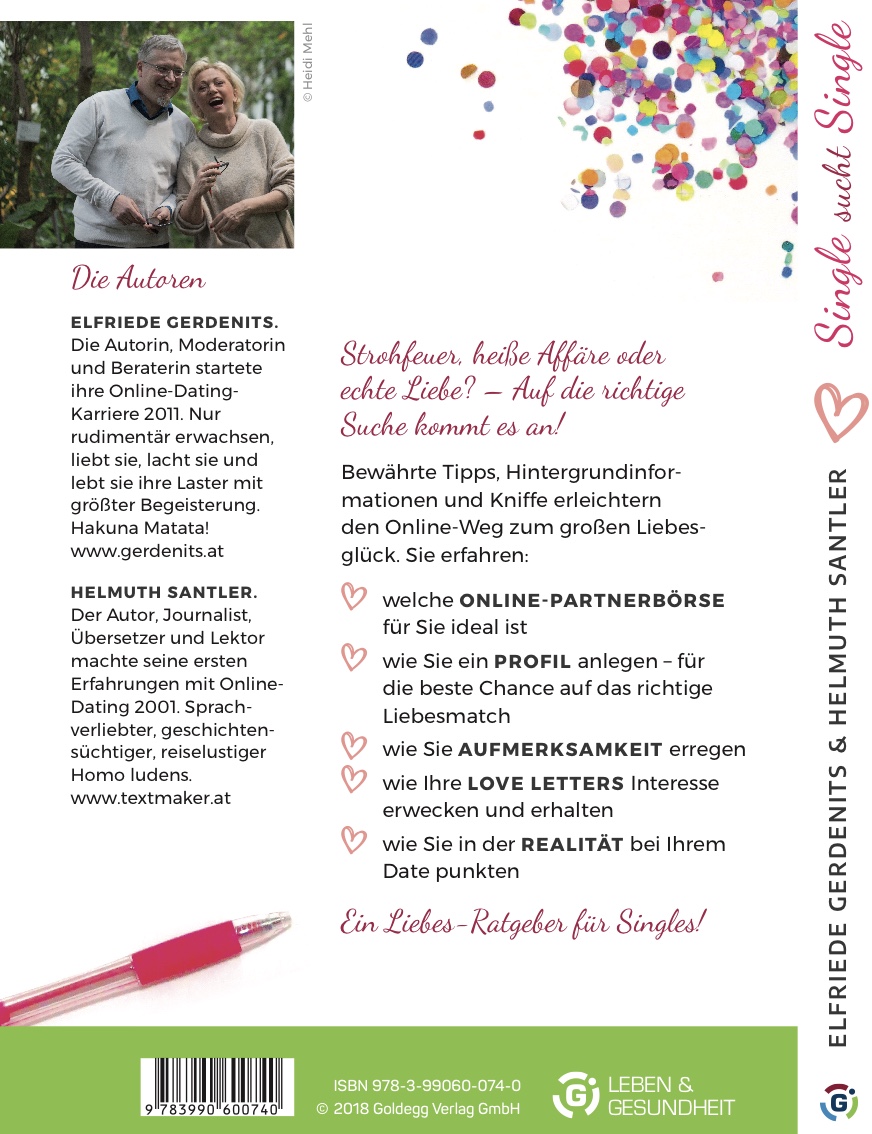 © Heidi Mehl
Die Autoren
ELFRIEDE GERDENITS.
Die Autorin, Moderatorin
und Beraterin startete
ihre Online-Dating-
Karriere 2011. Nur
rudimentär erwachsen,
liebt sie, lacht sie und
lebt sie ihre Laster mit
größter Begeisterung.
Hakuna Matata!
www.gerdenits.at
HELMUTH SANTLER.
Der Autor, Journalist,
Übersetzer und Lektor
machte seine ersten
Erfahrungen mit Online-
Dating 2001. Sprach-
verliebter, geschichten-
süchtiger, reiselustiger
Homo ludens.
www.textmaker.at
Strohfeuer, heiße Affäre oder
echte Liebe? – Auf die richtige
Suche kommt es an!
Bewährte Tipps, Hintergrundinfor-
mationen und Kniffe erleichtern
den Online-Weg zum großen Liebes-
glück. Sie erfahren:
welche ONLINE-PARTNERBÖRSE
für Sie ideal ist
wie Sie ein PROFIL anlegen – für
die beste Chance auf das richtige
Liebesmatch
wie Sie AUFMERKSAMKEIT erregen
wie Ihre LOVE LETTERS Interesse
erwecken und erhalten
wie Sie in der REALITÄT bei Ihrem
Date punkten
Ein Liebes-Ratgeber für Singles!
9 783990 600740
ISBN 978-3-99060-074-0
© 2018 Goldegg Verlag GmbH
G
LEBEN &
GESUNDHEIT
Single sucht Single
ELFRIEDE GERDENITS & HELMUTH SANTLER
G